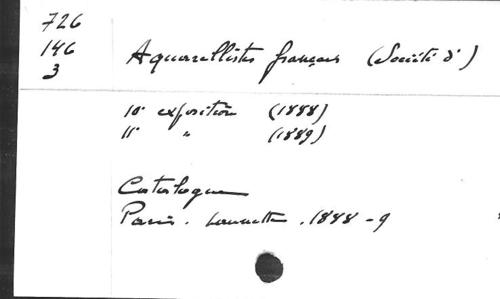 726
146
3
Aquarellistes français (Société d')
10e exposition (1888)
11e " (1889)
Catalogue
Paris. Launette. 1888-9